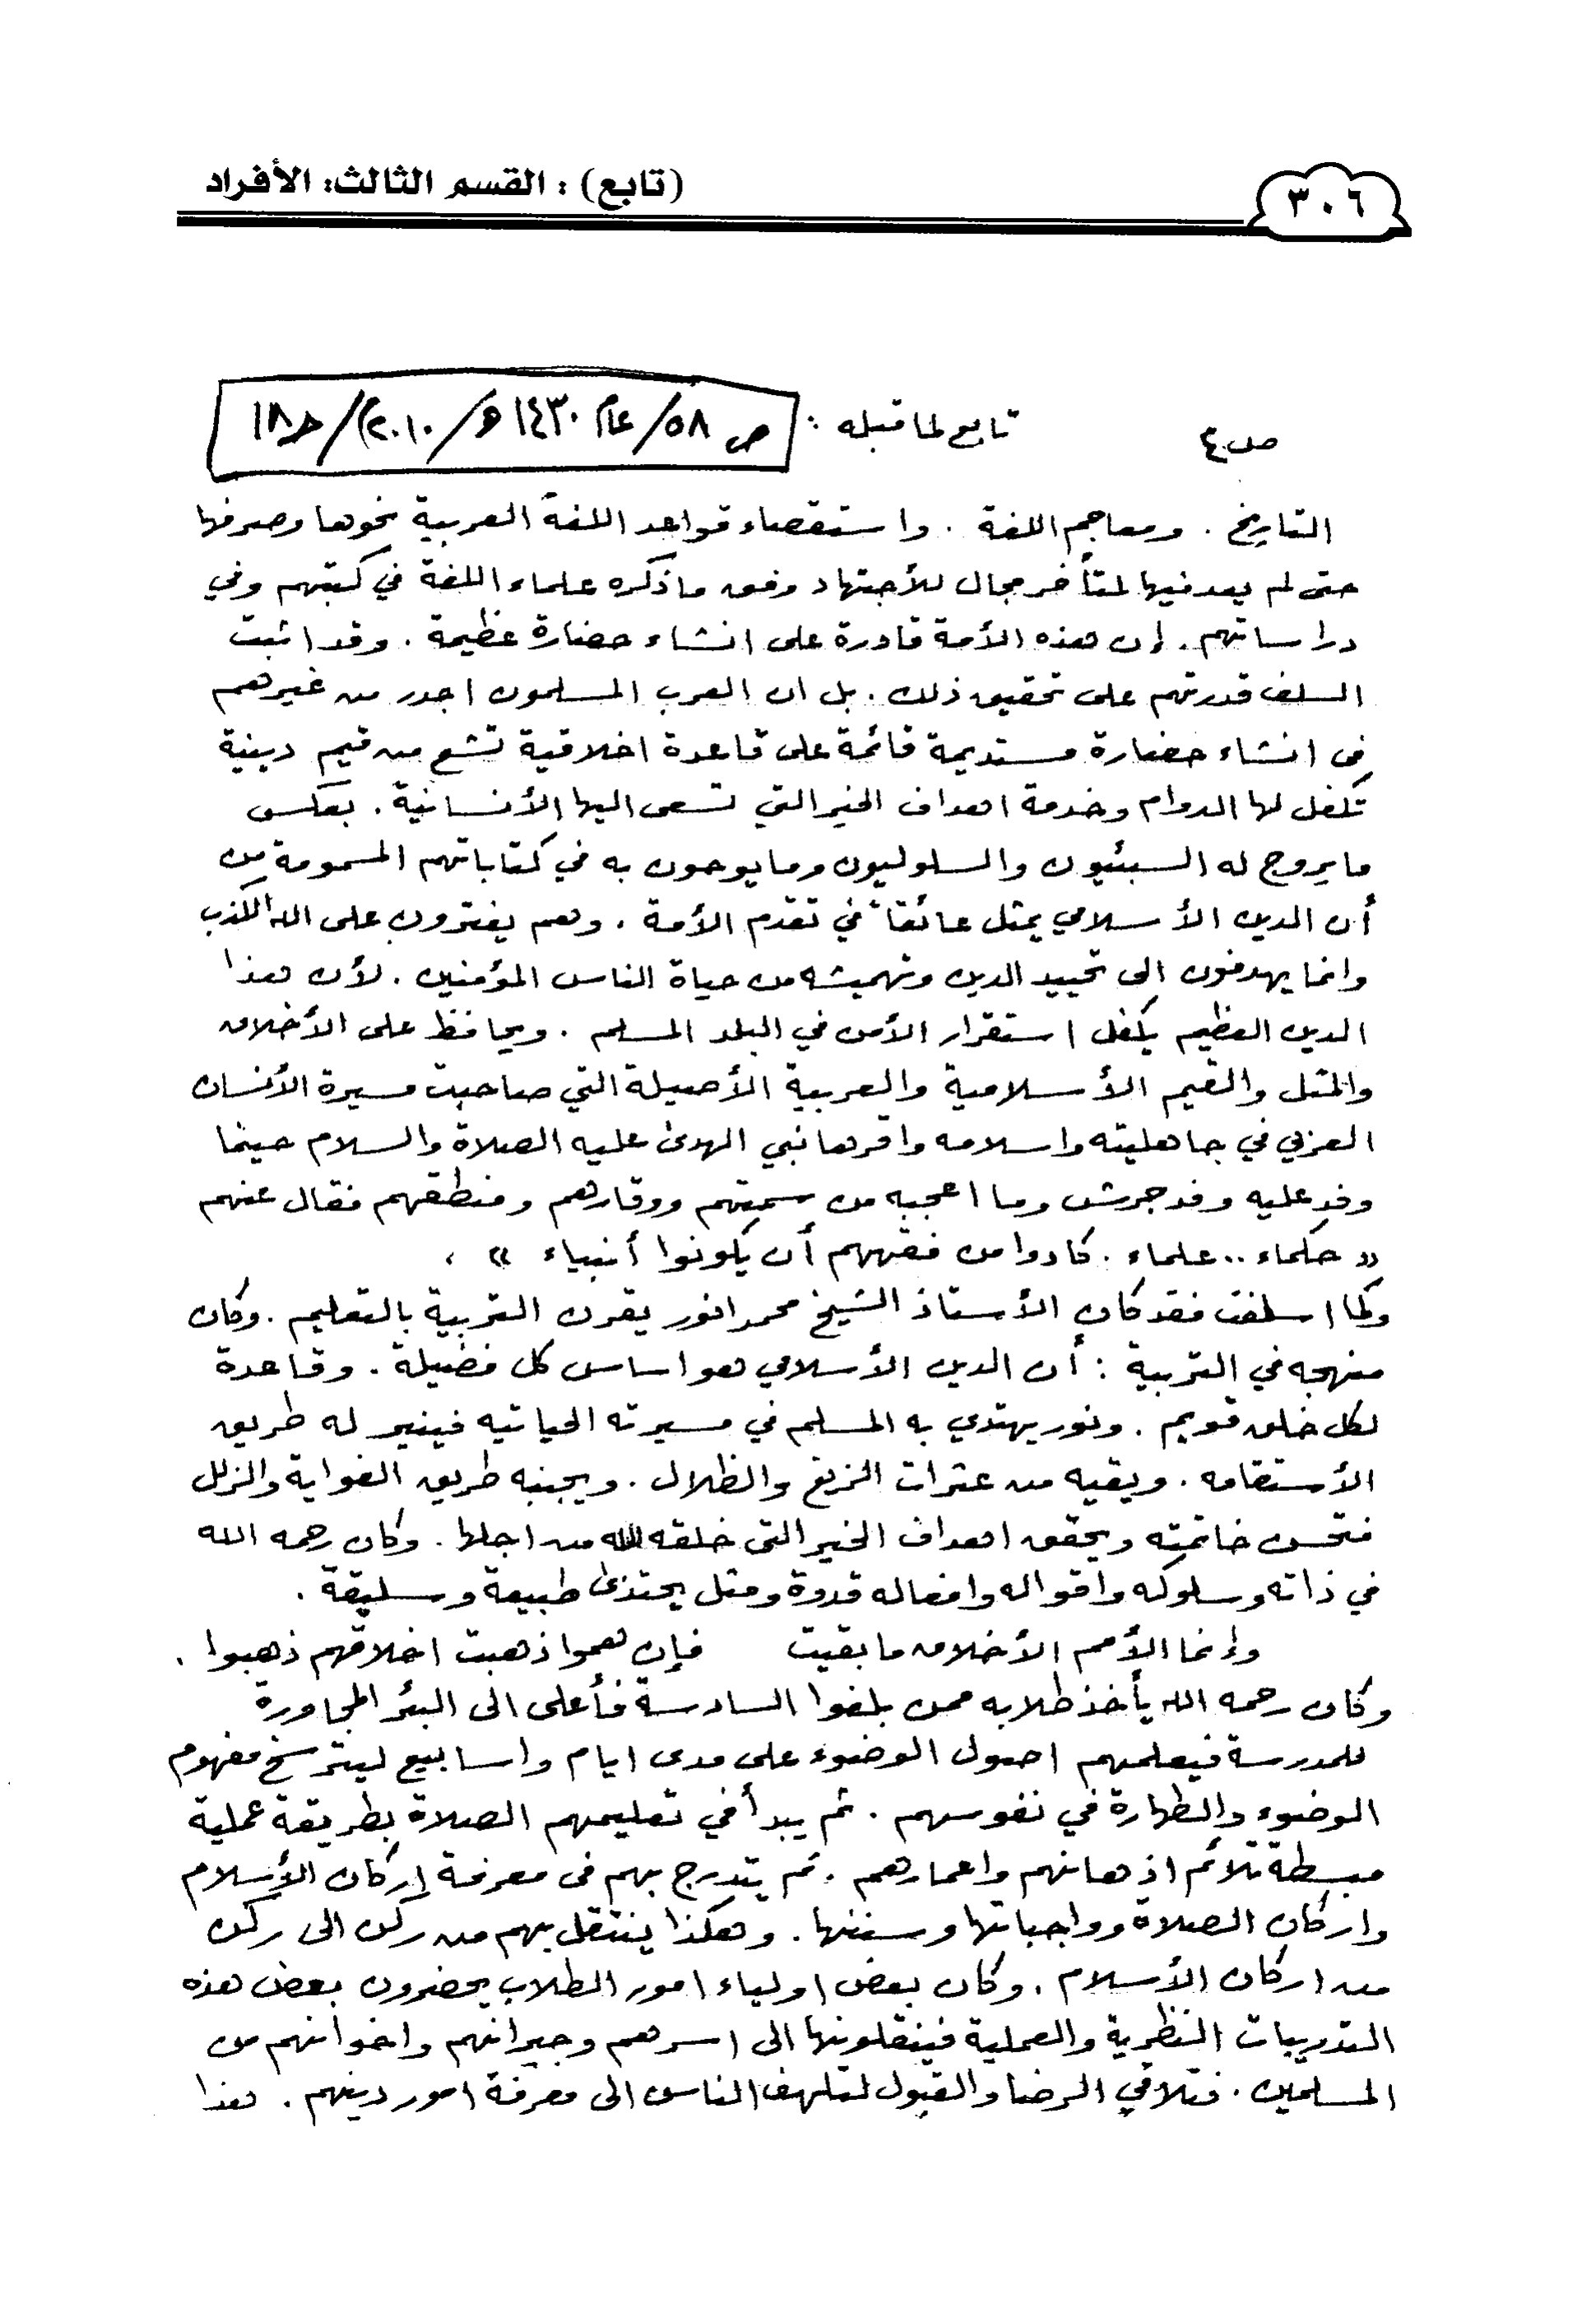 ٣٠٦
(تابع) : القسم الثالث: الأفراد
ص ٤
تابع لما قبله :
ص ٥٨/ عام ١٤٣٠هـ/٢٠١٠م/ ح١٨
التاريخ . ومعاجم اللغة . واستقصاء قواعد اللغة العربية نحوها وصرفها
حتى لم يعد فيها لمتأخر مجال للأجتهاد وفق ما ذكره علماء اللغة في كتبهم وفي
دراساتهم . إن هذه الأمة قادرة على انشاء حضارة عظيمة . وقد اثبت
السلف قدرتهم على تحقيق ذلك . بل ان العرب المسلمون اجدر من غيرهم
في انشاء حضارة مستديمة قائمة على قاعدة اخلاقية تشع من قيم دينية
تكفل لها الدوام وخدمة اهداف الخير التي تسعى اليها الأنسانية . بعكس
ما يروج له السبئيون والسلوليون وما يوحون به في كتاباتهم المسمومة من
أن الدين الأسلامي يمثل عائقاً في تقدم الأمة . وهم يفترون على الله الكذب
وانما يهدفون الى تحييد الدين وتهميشه من حياة الناس المؤمنين . لأن هذا
الدين العظيم يكفل استقرار الأمن في البلد المسلم . ويحافظ على الأخلاق
والمثل والقيم الأسلامية والعربية الأصيلة التي صاحبت مسيرة الأنسان
العربي في جاهليته واسلامه واقرها نبي الهدى عليه الصلاة والسلام حينما
وفد عليه وفد جرش وما اعجبه من سمتهم ووقارهم ومنطقهم فقال عنهم
« حكماء .. علماء . كادوا من فقههم أن يكونوا أنبياء » ،
وكما اسلفت فقد كان الأستاذ الشيخ محمد انور يقرن التربية بالتعليم . وكان
منهجه في التربية : أن الدين الأسلامي هو اساس كل فضيلة . وقاعدة
لكل خلق قويم . ونور يهتدي به المسلم في مسيرته الحياتيه فينير له طريق
الأستقامه . ويقيه من عثرات الزيغ والظلال . ويجنبه طريق الغواية والزلل
فتحسن خاتمته ويحقق اهداف الخير التي خلقه الله من اجلها . وكان رحمه الله
في ذاته وسلوكه واقواله وافعاله قدوة ومثل يحتذى طبيعة وسليقة .
وإنما الأمم الأخلاق ما بقيت فإن همو اذهبت اخلاقهم ذهبوا .
وكان رحمه الله يأخذ طلابه ممن بلغوا السادسة فأعلى الى البئر المجاورة
للمدرسة فيعلمهم اصول الوضوء على مدى ايام واسابيع ليترسخ مفهوم
الوضوء والطهارة في نفوسهم . ثم يبدأ في تعليمهم الصلاة بطريقة عملية
مبسطة تلائم اذهانهم واعمارهم . ثم يتدرج بهم في معرفة اركان الأسلام
واركان الصلاة وواجباتها وسننها . وهكذا ينتقل بهم من ركن الى ركن
من اركان الأسلام . وكان بعض اولياء امور الطلاب يحضرون بعض هذه
التدريبات النظرية والعملية فينقلونها الى اسرهم وجيرانهم واخوانهم من
المسلمين . فتلاقي الرضا والقبول لتلهف الناس الى معرفة امور دينهم . هذا